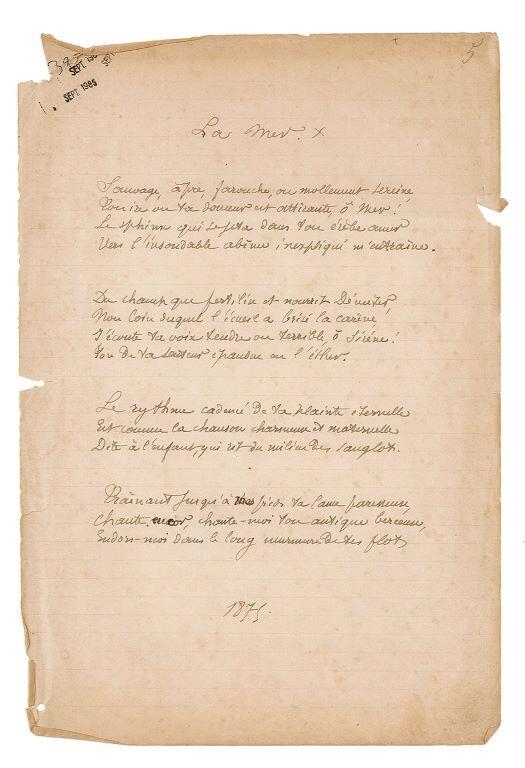 5
SEPT. 198
SEPT
SEPT. 1985
La Mer. x
Sauvage, âpre, farouche, ou mollement sereine
Noire, où ta douceur est attirante, ô Mer!
Le sphinx qui se jeta dans ton érèbe amer
Vers l'insondable abîme inexpliqué m'entraine.
Du champ que fertilise et nourrit
Non loin duquel l'écueil a brisé la carène,
J'écoute ta voix tendre ou terrible, ô Sirène!
de ta épandue en l'éther.
Le rythme cadencé de ta plainte éternelle
Est comme la chanson charmeuse et maternelle
Dite à l'enfant, qui rit du milieu des sanglots.
Traînant jusqu'à mes pieds ta lame paresseuse,
Chante encor, chante-moi ton antique berceuse,
Endors-moi dans le long murmure de tes flots
1875.